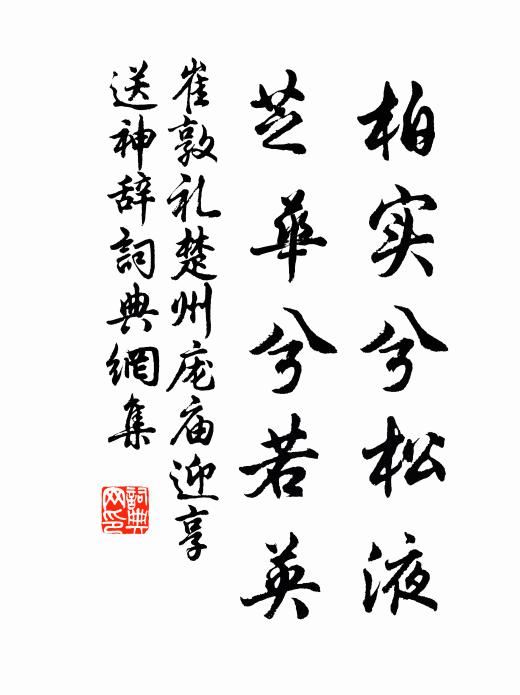 柏实兮松液
芝華兮若英
崔敦礼楚州庞庙迎享
送神辞詞典網集
詞典网印